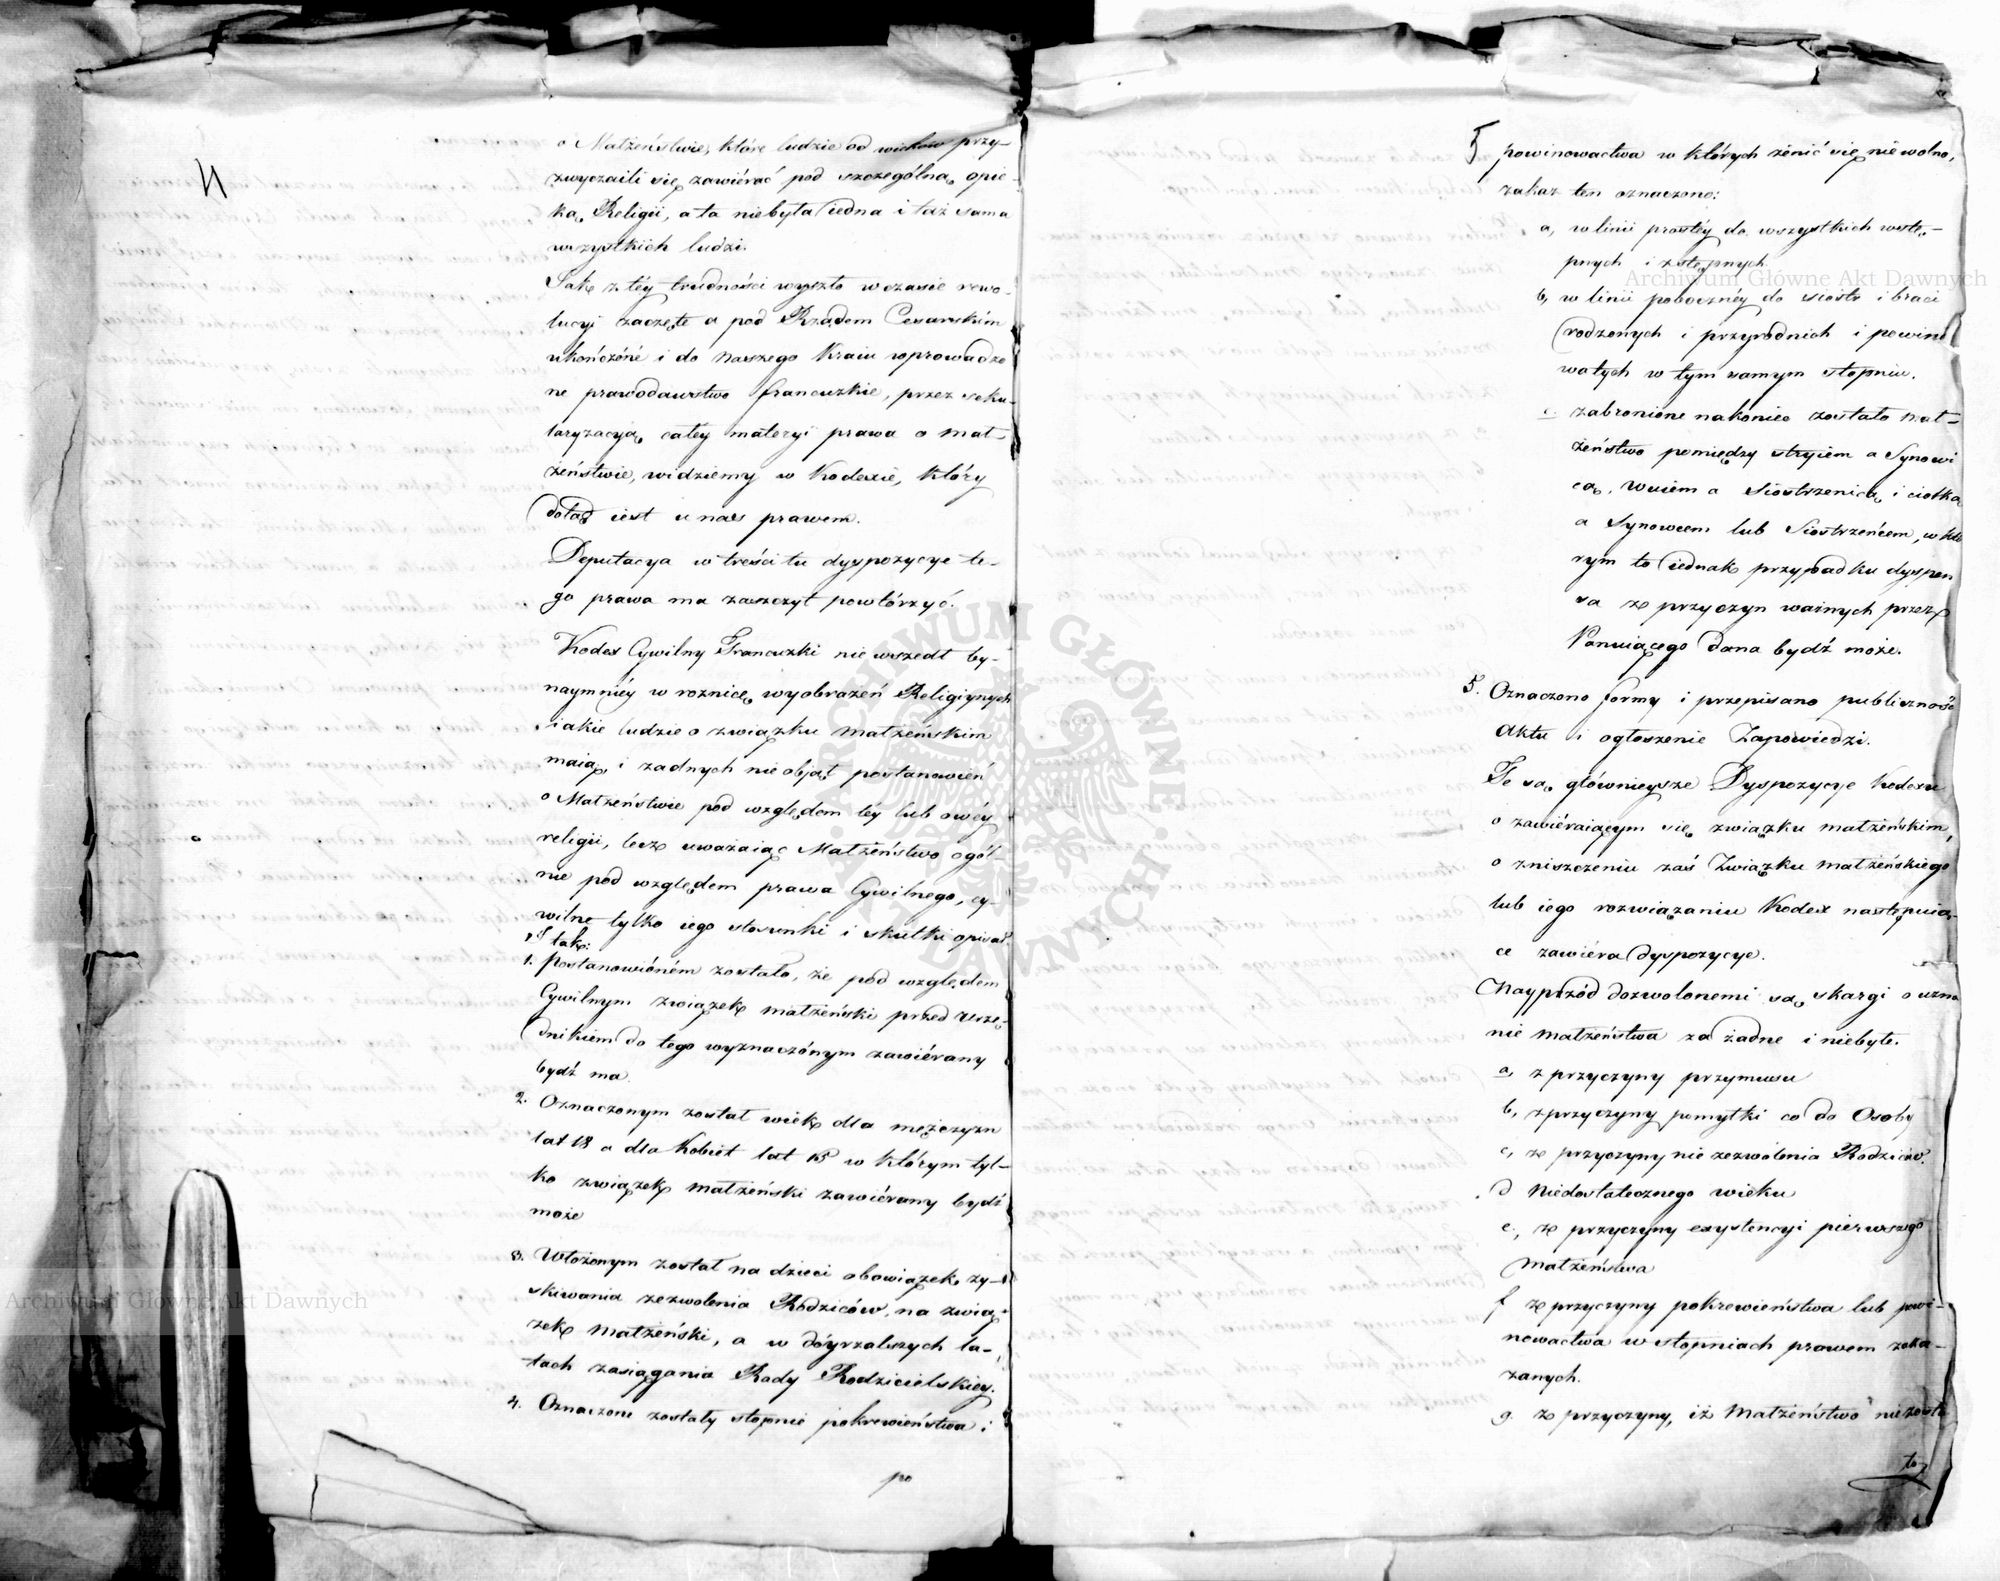 o Małżeństwie, które ludzie od wieków przy-
zwyczaili się zawiérać pod szczególną opie-
ką Religii, a ta niebyła iedna i taż sama
wszystkich ludzi.
Jak z téy trudności wyszło w czasie rewo-
lucyi zaczęte a pod Rządem Cesarskim
ukończóné i do naszego Kraiu wprowadzo
ne prawodawstwo francuzkie, przez seku-
laryzacyą całey materyi prawa o mał-
żeństwie, widziemy w Kodexie, który
dotąd iest u nas prawem.
Deputacya w treści tu dyspozycye te-
go prawa ma zaszczyt powtórzyć.
Kodex Cywilny Francuzki nie wszedł by-
naymniéy w roznicę wyobrażeń Religiynych
iakie ludzie o związku małżeńskim
maią, i żadnych nie objął postanowień
o Małżeństwie pod względem téy lub owéy
religii, lecz uważaiąc Małżeństwo ogól-
nie pod względem prawa Cywilnego, cy-
wilne tylko iego stosunki i skutki opisał.
I tak:
1. Postanowióném zostało, że pod względem
Cywilnym związek małżeński przed Urzę-
dnikiem do tego wyznaczónym zawiérany
bydź ma.
2. Oznaczonym został wiek dla mężczyzn
lat 18 a dla Kobiet lat 15 w którym tyl-
ko związek małżeński zawiérany bydź
może
3. Włożonym został na dzieci obowiązek zy-
skiwania zezwolenia Rodziców, na zwią-
zek małżeński, a w dóyrzalszych la-
tach zasiągania Rady Rodzicielskiey.
4. Oznaczone zostały stopnie pokrewieństwa i
po
5
powinowactwa w których żenić się nie wolno,
zakaz ten oznaczono:
a, w linii prostéy do wszystkich wstę-
pnych i zstępnych
b, w linii pobocznéy do siostr i braci
rodzonych i przyrodnich i powino
watych w tym samym stopniu.
c. zabronione nakoniec zostało mał-
żeństwo pomiędzy stryiem a Synowi
cą, Wuiem a Siostrzenicą i ciotką
a Synowcem lub Siostrzeńcem, w któ
rym to iednak przypadku dyspen
sa z przyczyn ważnych przez
Panuiącego dana bydź może.
5. Oznaczono formy i przepisano publiczność
Aktu i ogłoszenie Zapowiedzi.
Te są główniejsze Dyspozycye Kodexu
o zawiéraiącym się związku małżeńskim,
o zniszczeniu zaś Związku małżeńskiego
lub iego rozwiązaniu Kodex następuią-
ce zawiéra dyspozycye.
Nayprzód dozwolonemi są skargi o uzna
nie małżeństwa za żadne i niebyłe.
a, z przyczyny przymusu
b, z przyczyny pomyłki co do Osoby
c, z przyczyny nie zezwolenia Rodziców.
d Niedostatecznego wieku
e, z przyczyny exystencyi pierwszego
Małżeństwa
f z przyczyny pokrewieństwa lub powi-
nowactwa w stopniach prawem zaka-
zanych.
g. z przyczyny, iż Małżeństwo niezosta
ło
Archiwum Główne Akt Dawnych
Archiwum Główne Akt Dawnych
ARCHIWUM GŁÓWNE AKT DAWNYCH